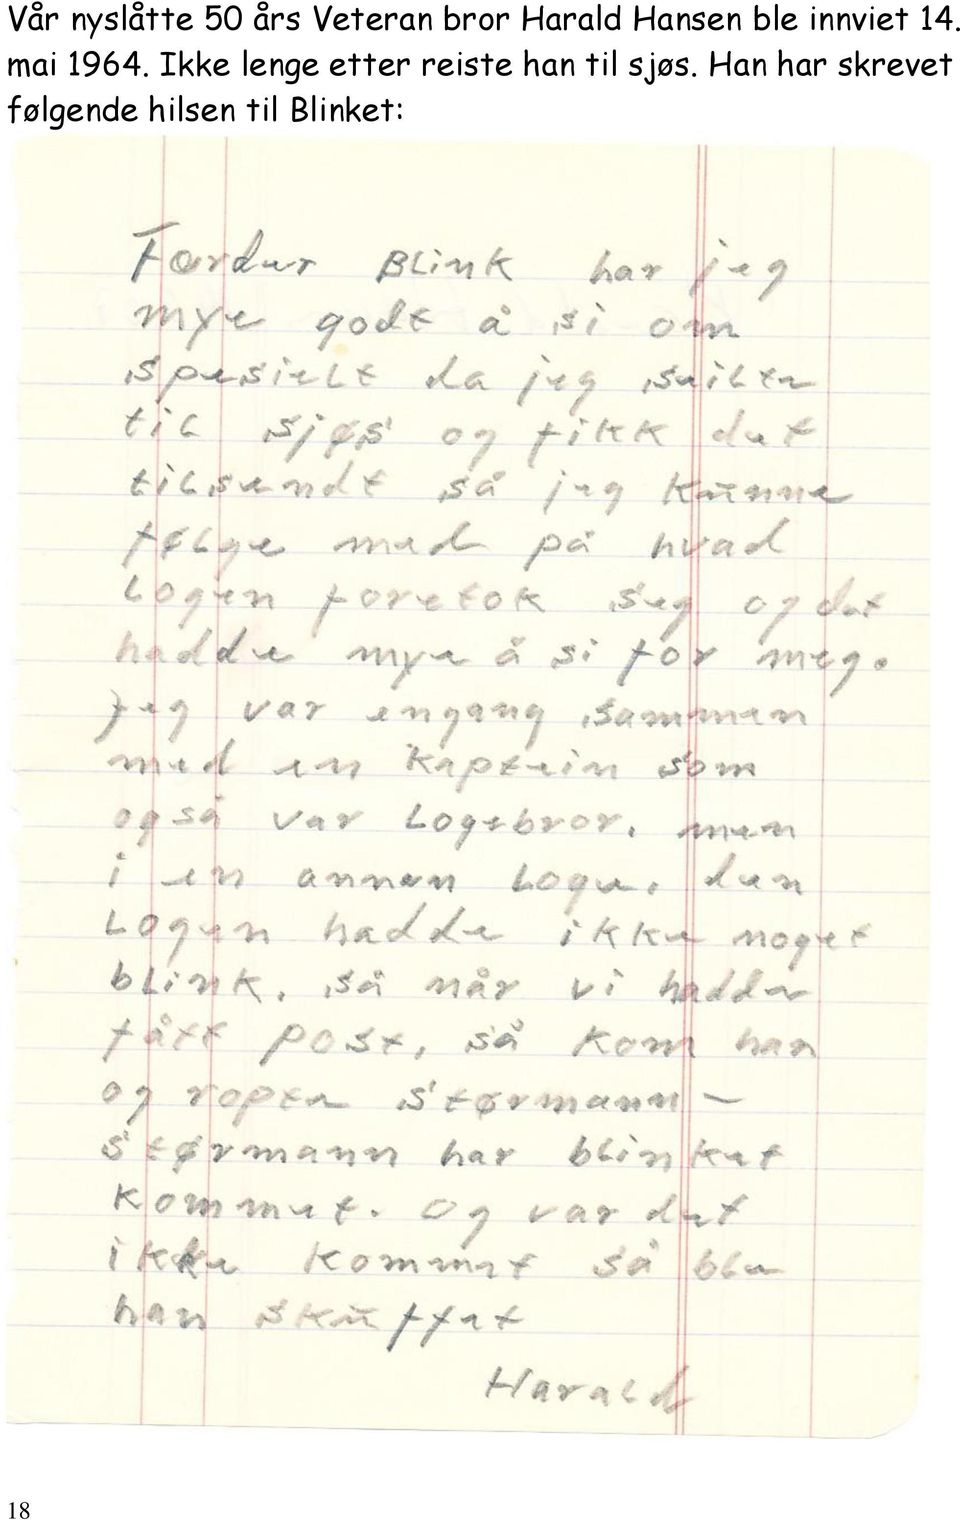 Vår nyslåtte 50 års Veteran bror Harald Hansen ble innviet 14.
mai 1964. Ikke lenge etter reiste han til sjøs. Han har skrevet
følgende hilsen til Blinket:
Færder BLink har jeg
mye godt å si om
spesielt da jeg seilte
til sjøs og fikk det
tilsendt så jeg kunne
følge med på hvad
Logen foretok seg og det
hadde mye å si for meg.
jeg var engang sammen
med en Kaptein som
også var Logebror, men
i en annen Loge, den
Logen hadde ikke noget
blink, så når vi hadde
fått post, så kom han
og ropte Størmann –
Størmann har blinket
kommet. Og var det
ikke kommet så ble
han skuffet
Harald
18